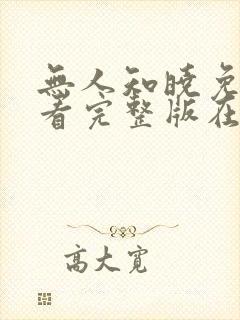 無人知曉免
看完整版在
高大寬